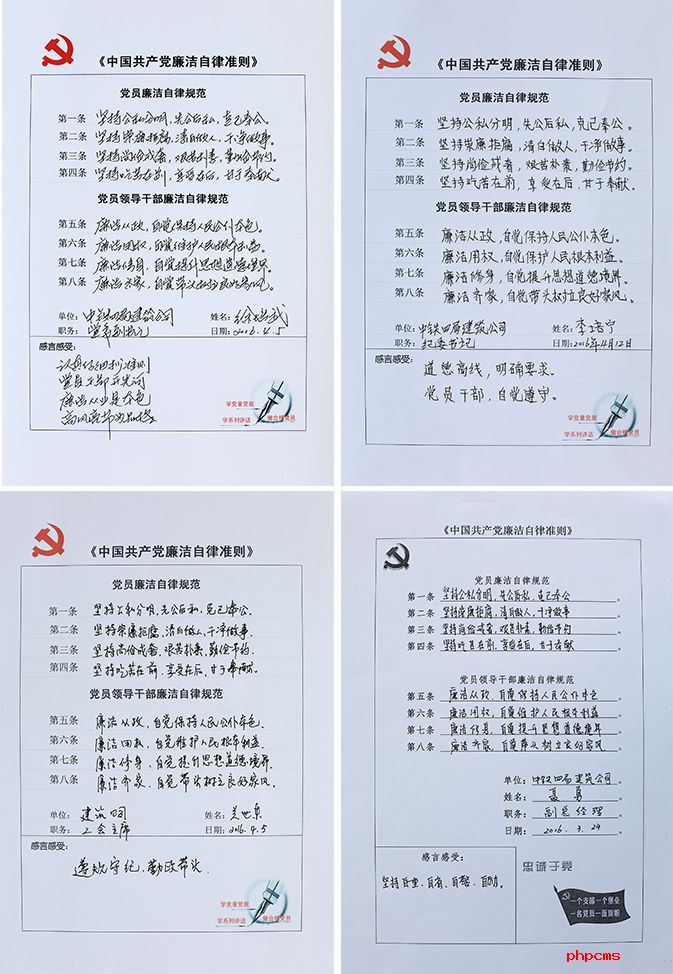 《中国共产党廉洁自律准则》
党员廉洁自律规范
第一条 坚持公私分明，先公后私，克己奉公。
第二条 坚持崇廉拒腐，清白做人，干净做事。
第三条 坚持尚俭戒奢，艰苦朴素，勤俭节约。
第四条 坚持吃苦在前，享受在后，甘于奉献。
党员领导干部廉洁自律规范
第五条 廉洁从政，自觉保持人民公仆本色。
第六条 廉洁用权，自觉维护人民根本利益。
第七条 廉洁修身，自觉提升思想道德境界。
第八条 廉洁齐家，自觉带头树立良好家风。
单位：中铁四局建筑公司 姓名：
职务：党委副书记 日期：2016.4.5
感言感受：
认真贯彻准则
党员干部
廉洁从业是本色
学党章党规
学系列讲话 做合格党员
《中国共产党廉洁自律准则》
党员廉洁自律规范
第一条 坚持公私分明，先公后私，克己奉公。
第二条 坚持崇廉拒腐，清白做人，干净做事。
第三条 坚持尚俭戒奢，艰苦朴素，勤俭节约。
第四条 坚持吃苦在前，享受在后，甘于奉献。
党员领导干部廉洁自律规范
第五条 廉洁从政，自觉保持人民公仆本色。
第六条 廉洁用权，自觉保护人民根本利益。
第七条 廉洁修身，自觉提升思想道德境界。
第八条 廉洁齐家，自觉带头树立良好家风。
单位：中铁四局建筑公司 姓名：李培宁
职务：纪委书记 日期：2016年4月12日
感言感受：
道德高线，明确要求。
党员干部，自觉遵守。
学党章党规
学系列讲话 做合格党员
《中国共产党廉洁自律准则》
党员廉洁自律规范
第一条 坚持公私分明，先公后私，克己奉公。
第二条 坚持崇廉拒腐，清白做人，干净做事.
第三条 坚持尚俭戒奢，艰苦朴素，勤俭节约.
第四条 坚持吃苦在前，享受在后，甘于奉献.
党员领导干部廉洁自律规范
第五条 廉洁从政，自觉保持人民公仆本色。
第六条 廉洁用权，自觉维护人民根本利益。
第七条 廉洁修身，自觉提升思想道德境界.
第八条 廉洁齐家，自觉带头树立良好家风。
单位：建筑公司 姓名：
职务：工会主席 日期：2016.4.5
感言感受：
遵规守纪，勤政带头.
学党章党规
学系列讲话 做合格党员
《中国共产党廉洁自律准则》
党员廉洁自律规范
第一条 坚持公私分明，先公后私，克己奉公。
第二条 坚持崇廉拒腐，清白做人，干净做事。
第三条 坚持尚俭戒奢，艰苦朴素，勤俭节约。
第四条 坚持吃苦在前，享受在后，甘于奉献。
党员领导干部廉洁自律规范
第五条 廉洁从政，自觉保持人民公仆本色。
第六条 廉洁用权，自觉维护人民根本利益。
第七条 廉洁修身，自觉提升思想道德境界。
第八条 廉洁齐家，自觉带头树立良好家风。
单位：中铁四局建筑公司。
姓名：聂勇。
职务：副总经理。
日期：2016.3.29。
感言感受：
坚持自重、自省、自警、自励。
忠诚于党
一个支部一个堡垒
一名党员一面旗帜
phpcms